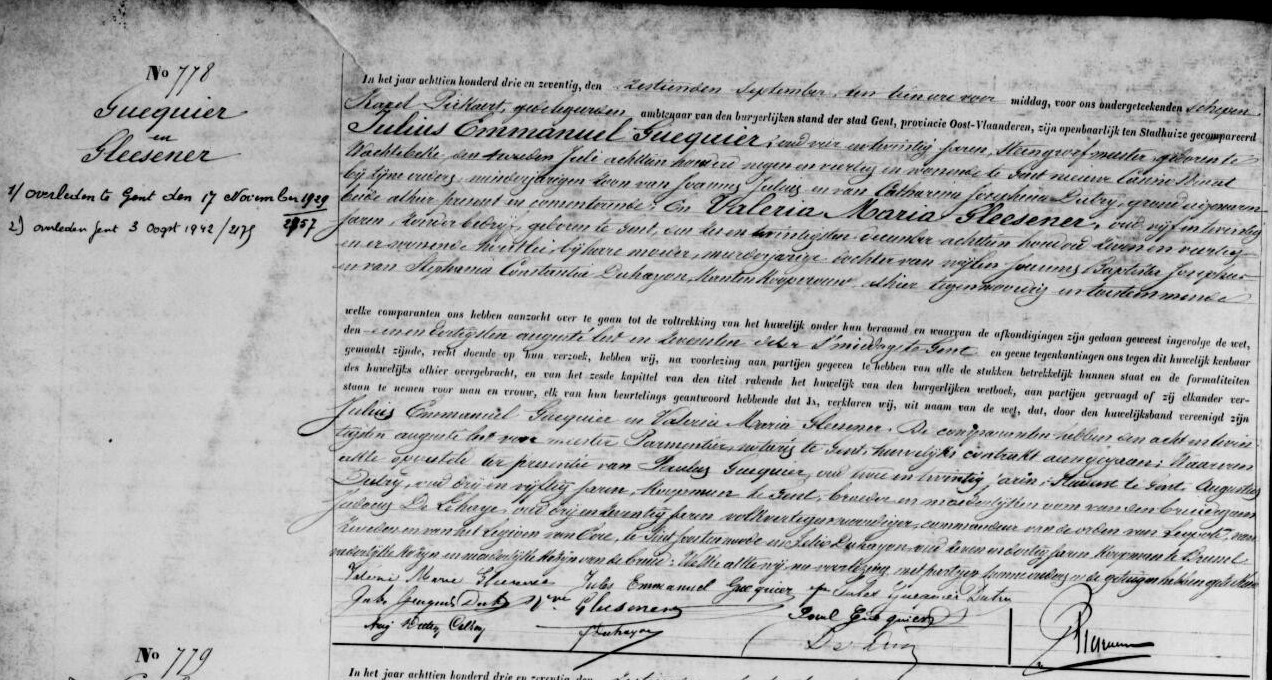 No 778
Gucquier
en
Gleesener
1) overleden te Gent den 17 November 1929
2) overleden Gent 3 Oogst 1942 / 2175
In het jaar achttien honderd drie en zeventig, den zestienden September, ten tien ure voor middag, voor ons ondergeteekenden schepen
Karel gedelegeerden ambtenaar van den burgerlijken stand der stad Gent, provincie Oost-Vlaanderen, zijn openbaarlijk ten Stadhuize gecompareerd
Julius Emmanuel Gucquier, oud vier en twintig jaren, geboren te
Wachtebeke, den tweeden Juli achttien honderd negen en veertig en wonende te Gent nieuwe Casino Straat
bij zijne ouders, minderjarigen zoon van Joannes Julius en van Catharina Josephina Dutry, grondeigenaren
beide alhier present en consenterende; En Valeria Maria Gleesener, oud vijf en twintig
jaren, zonder bedrijf, geboren te Gent, den zes en twintigsten December achttien honderd zeven en veertig
en er wonende bij hare moeder, meerderjarige dochter van wijlen Joannes Baptista Josephus
en van Stephania Constantia Duhayon, alhier tegenwoordig en toestemmende
welke comparanten ons hebben aanzocht over te gaan tot de voltrekking van het huwelijk onder hun beraamd en waarvan de afkondigingen zijn gedaan geweest ingevolge de wet,
den een en dertigsten augusti lest en zevensten dezer 's middags te Gent en geene tegenkantingen ons tegen dit huwelijk kenbaar
gemaakt zijnde, recht doende op hun verzoek, hebben wij, na voorlezing aan partijen gegeven te hebben van alle de stukken betrekkelijk hunnen staat en de formaliteiten
des huwelijks alhier overgebracht, en van het zesde kapittel van den titel rakende het huwelijk van den burgerlijken wetboek, aan partijen gevraagd of zij elkander ver-
staan te nemen voor man en vrouw, elk van hun beurtelings geantwoord hebbende dat Ja, verklaren wij, uit naam van de wet, dat, door den huwelijksband vereenigd zijn
Julius Emmanuel Gucquier en Valeria Maria Gleesener. De comparanten hebben den acht en twin-
tigsten augusti lest voor meester Parmentier, notaris te Gent, huwelijks contrakt aangegaan; Waarvan
akte opgesteld ter presentie van Paulus Gucquier, oud twee en twintig jaren, te Gent, Augustus
Dutry, oud drij en vijftig jaren, koopman te Gent, broeder en moederlijken oom van den bruidegom
Judocus De Lehaye, oud drij en zeventig jaren volksvertegenwoordiger, commandeur van de orden van Leopold, van
en van het Legioen van Eere, te Sint Joostennoode en Felix Duhayon oud zeven en dertig jaren koopman te Brussel
vaderlijke kozijn en moederlijke kozijn van de bruid. Welke akte wij, na voorlezing, met partijen hunne ouders en de getuigen hebben geteekend
Valérie Marie Gleesener Jules Emmanuel Gucquier
Jules Gucquier Dutry Vve Gleesener Paul Gucquier
Duhayon
No 779
In het jaar achttien honderd drie en zeventig, den